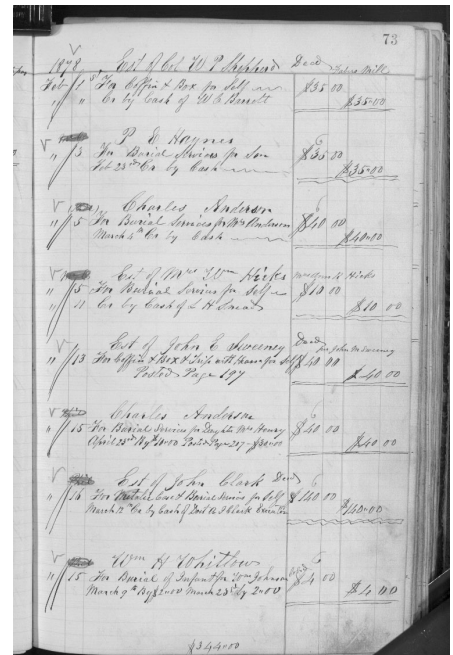 73
1878 Est of Col W P Shepherd Dead
Feb 1st For Coffin & Box for Self $35 00
" " Cr by Cash of W E Barrett $35=00
P E Haynes
" 3 For Burial Services for Son $35 00
Feb 23rd Cr by Cash $35=00
Charles Anderson
" 5 For Burial Services for Mrs Anderson $40 00
March 4th Cr by Cash $40=00
Est of Mrs Wm Hicks
" 5 For Burial Services for Self $10 00
" 11 Cr by Cash of L H $10 00
Est of John E Sweeney Dead for John M Sweeney
" 13 For Coffin & Box & Trip with Hearse for Self $40 00
Posted Page 197 $40 00
Charles Anderson
" 15 For Burial Services for Daughter Mrs Henry $40 00
April 23rd By $10=00 Posted Page 217 - $30=00 $40 00
Est of John Clark Dead
" 16 For Metalic Case & Burial Services for Self $140 00
March 12 Cr by Cash of R J Clark Executor $140=00
Wm H Whitlow
" 15 For Burial of Infant for Wm Johnson $4 00
March 9th By $2=00 March 23rd by 2=00 $4 00
$344=00